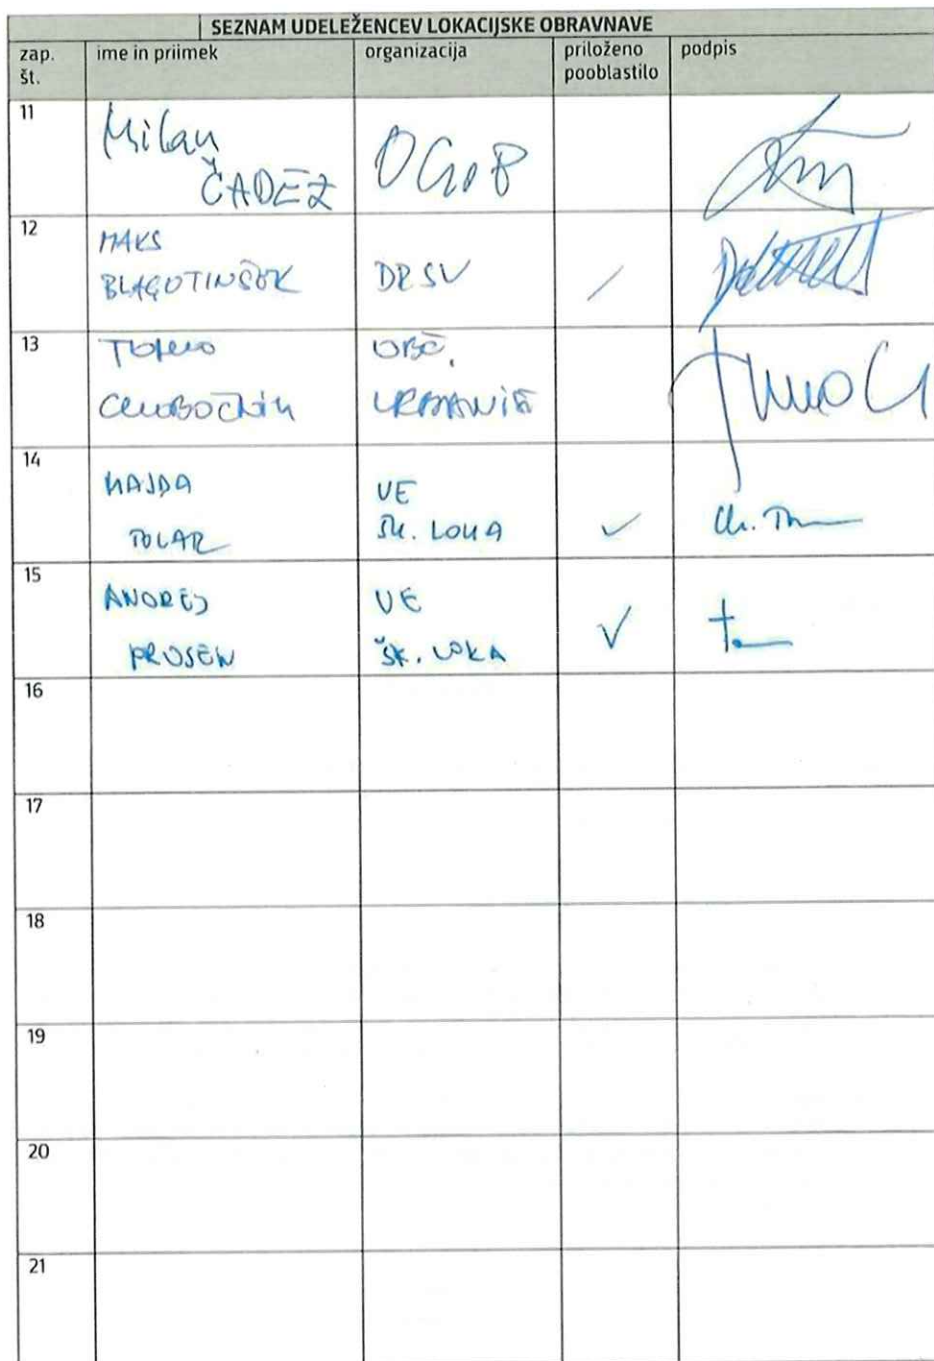 SEZNAM UDELEŽENCEV LOKACIJSKE OBRAVNAVE
zap. št. ime in priimek organizacija priloženo pooblastilo podpis
11 Milan ČADEŽ
12 MAKS BLAGOTINŠEK DRSV /
13 OBČ. URBANIST
14 MAJDA POLAR UE ŠK. LOKA ✓
15 ANDREJ PROSEN UE ŠK. LOKA ✓
16
17
18
19
20
21